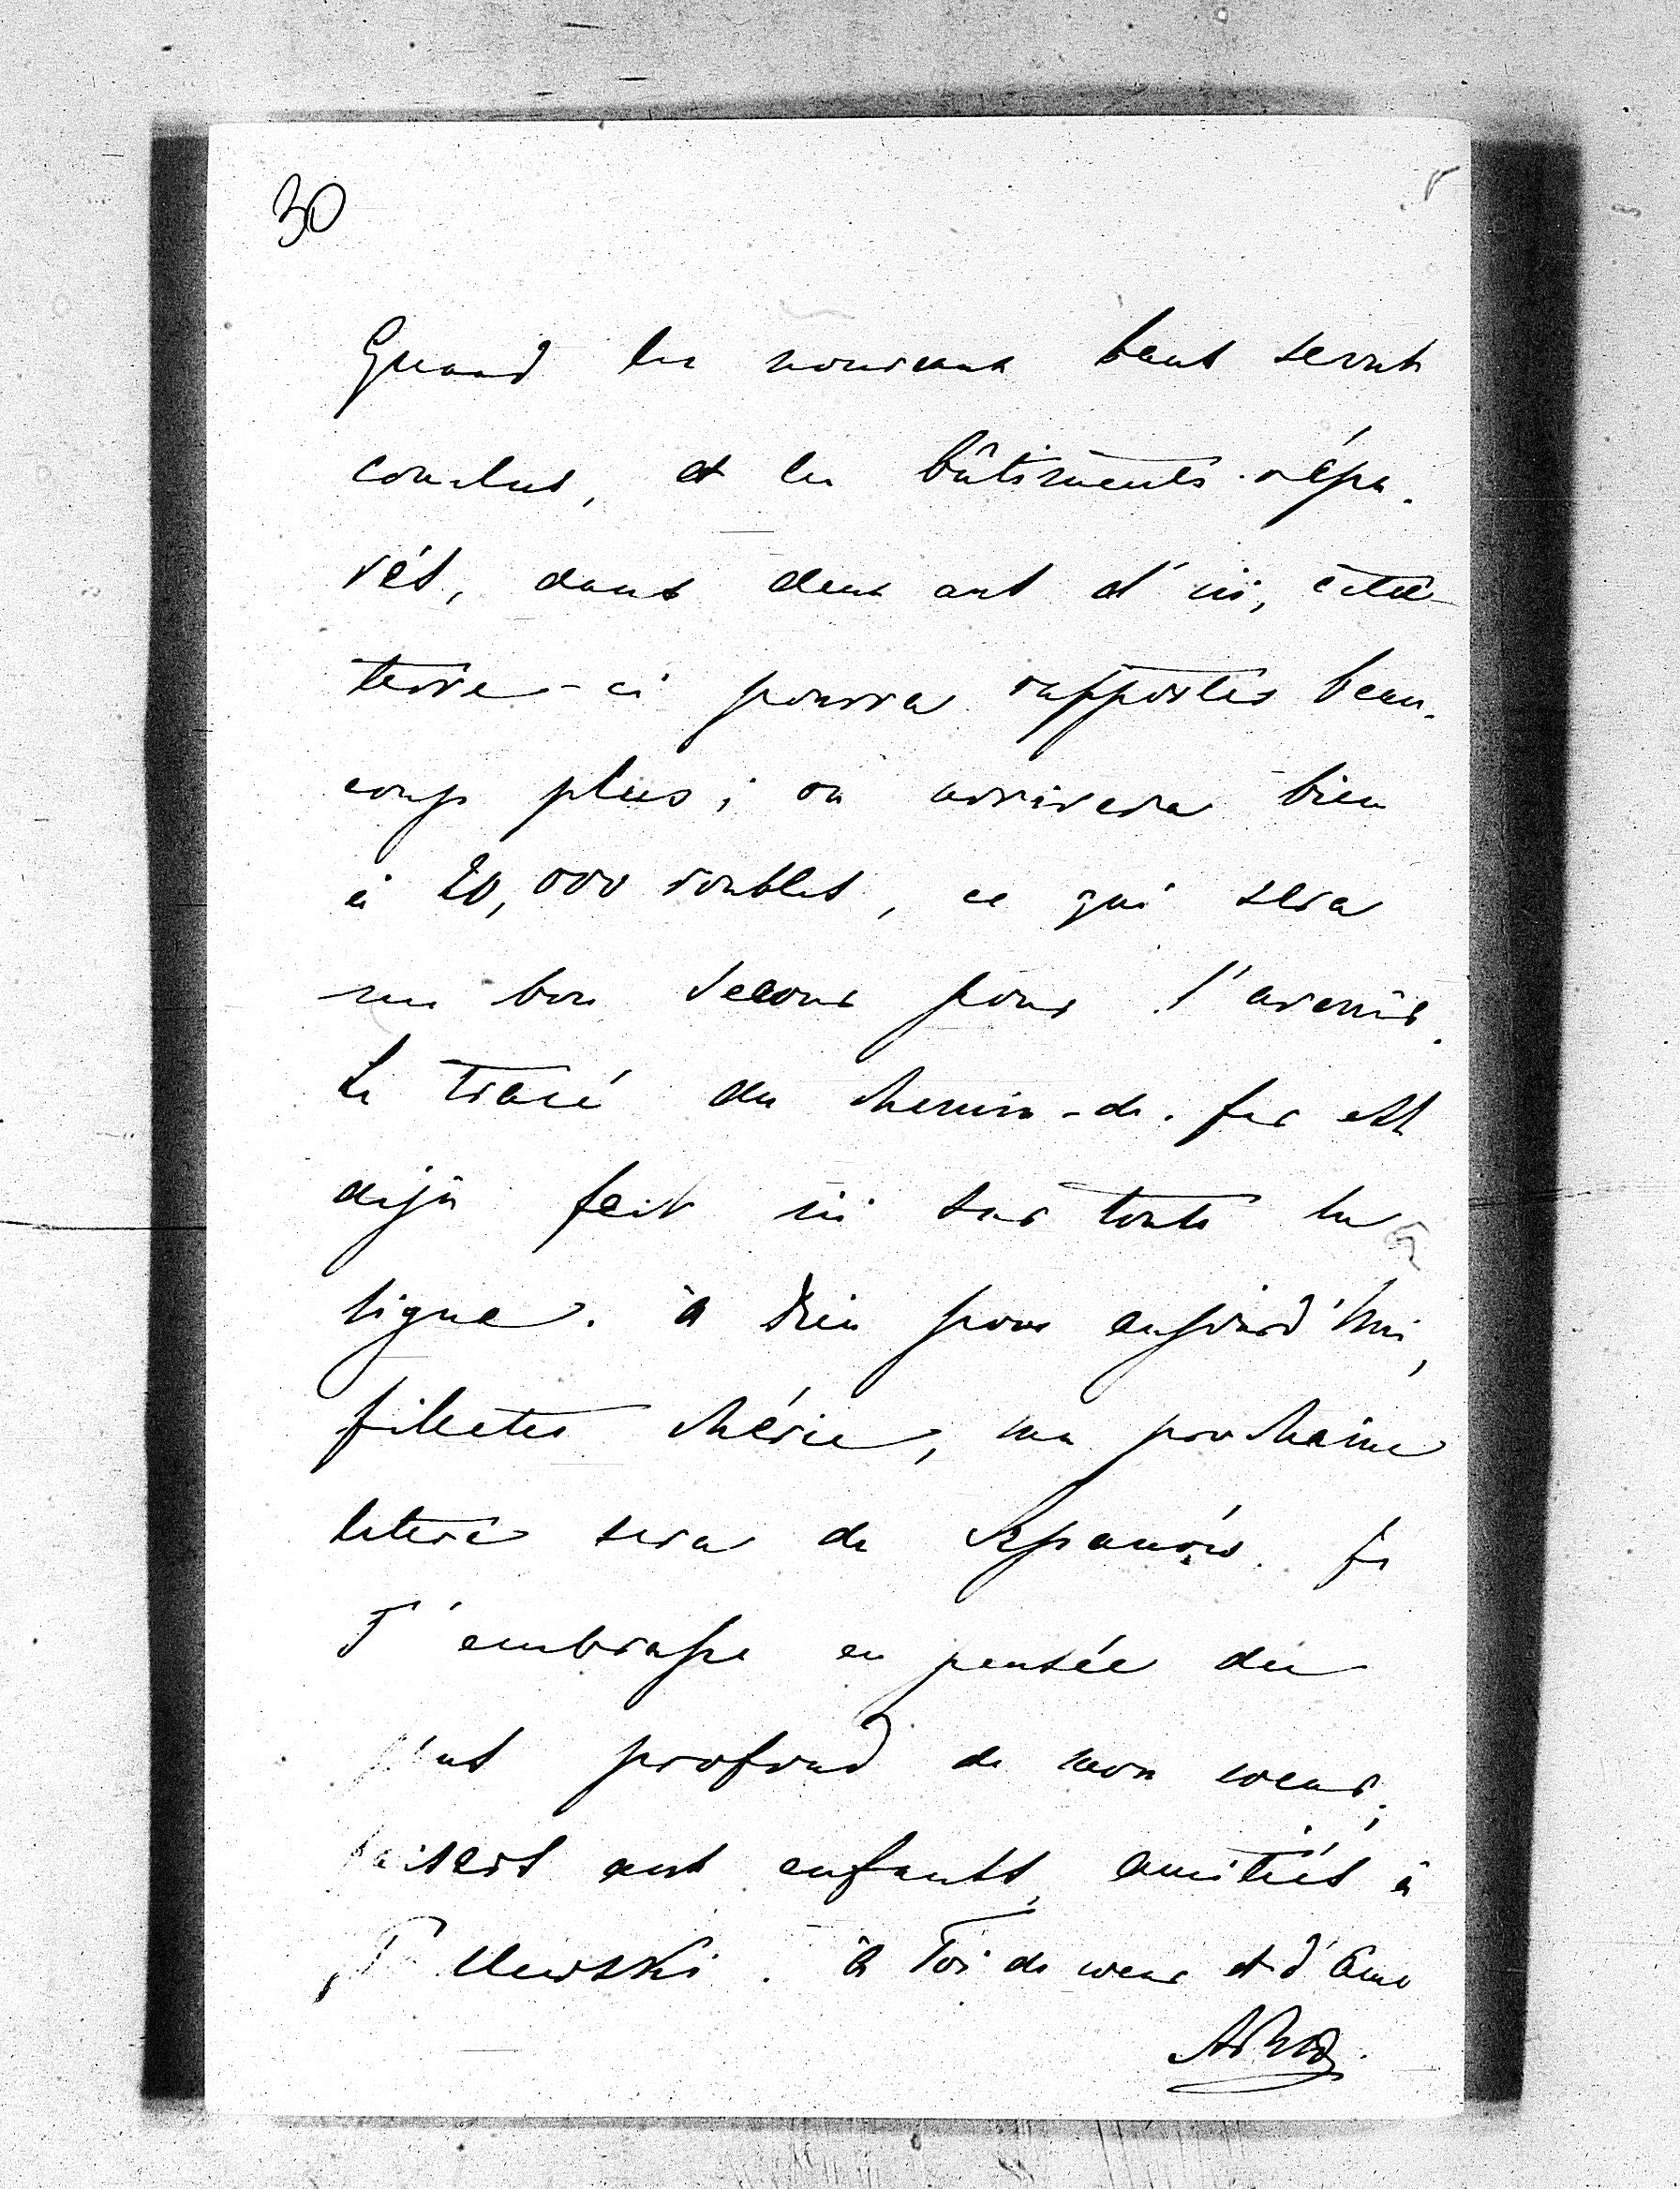 30
Quand les nouveaux baux seront
conclus, et les bâtiments répa-
rés, dans deux ans d'ici, cette
terre-ci pourra rapporter beau-
coup plus; on arrivera bien
à 20,000 roubles, ce qui sera
un bon secours pour l'avenir.
Le tracé du chemin-de-fer est
déjà fait ici sur toute la
ligne. à Dieu pour aujourd'hui,
fillette chérie, ma prochaine
lettre sera de Szpanów. Je
T'embrasse en pensée du
plus profond de mon coeur;
baisers aux enfants, amitiés à
à Toi de coeur et d'âme